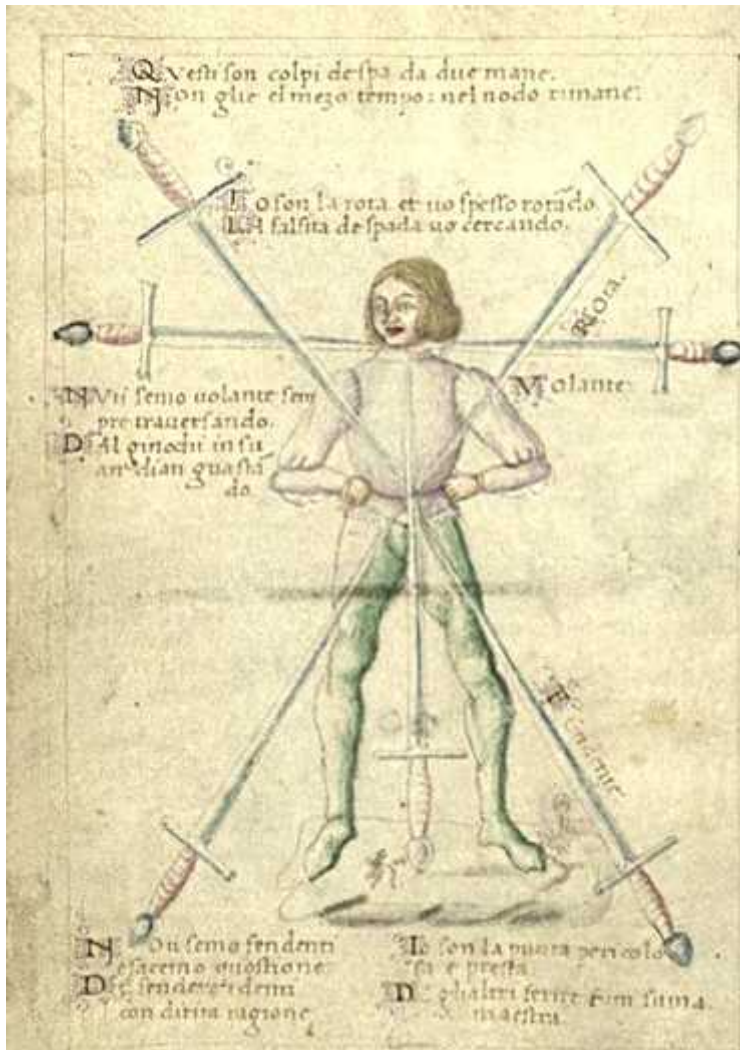 Questi son colpi de spa da due mane.
Non glie el mezo tempo: nel nodo rimane:
Io son la rota et uo spesso rotādo
La falsita de spada uo cercando.
Rota.
Volante
Nui semo uolante sem
pre trauersando.
Dal ginochi in su
guastā
do.
Fendente
Noii semo fendenti
e facemo questione
De fender denti
con dirita ragione.
Io son la punta pericolo
sa e presta
De glialtri ferire suma
maestra.